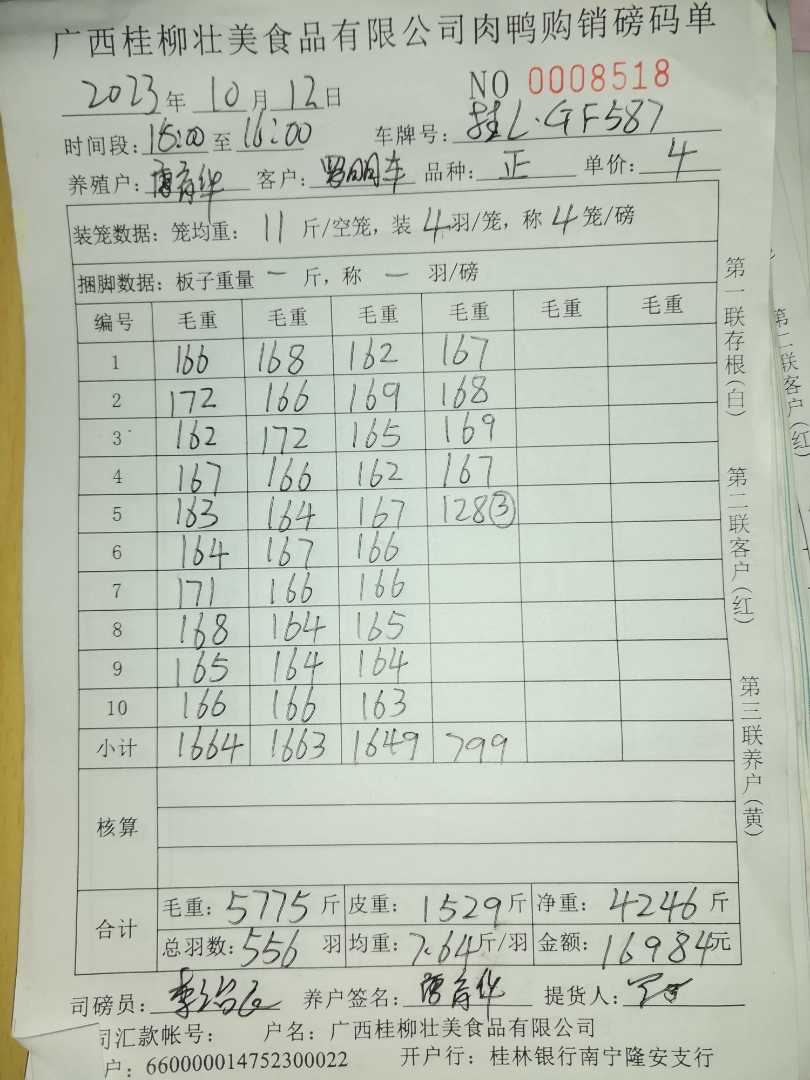 广西桂柳壮美食品有限公司肉鸭购销磅码单
2023年 10月 12日 NO 0008518
时间段: 15:00 至 16:00 车牌号: 桂L·GF587
养殖户: 客户: 品种: 正 单价: 4
装笼数据: 笼均重: 11 斤/空笼, 装 4 羽/笼, 称 4 笼/磅
捆脚数据: 板子重量 一 斤, 称 一 羽/磅
编号 毛重 毛重 毛重 毛重 毛重 毛重
1 166 168 162 167
2 172 166 169 168
3 162 172 165 169
4 167 166 162 167
5 163 164 167 128③
6 164 167 166
7 171 166 166
8 168 164 165
9 165 164 164
10 166 166 163
小计 1664 1663 1649 799
核算
合计 毛重: 5775斤 皮重: 1529斤 净重: 4246斤
总羽数: 556 羽 均重: 7.64斤/羽 金额: 16984元
司磅员: 养户签名: 提货人:
司汇款帐号: 户名: 广西桂柳壮美食品有限公司
户: 660000014752300022 开户行: 桂林银行南宁隆安支行
第一联存根(白)
第二联客户(红)
第三联养户(黄)
第二联客户(红)